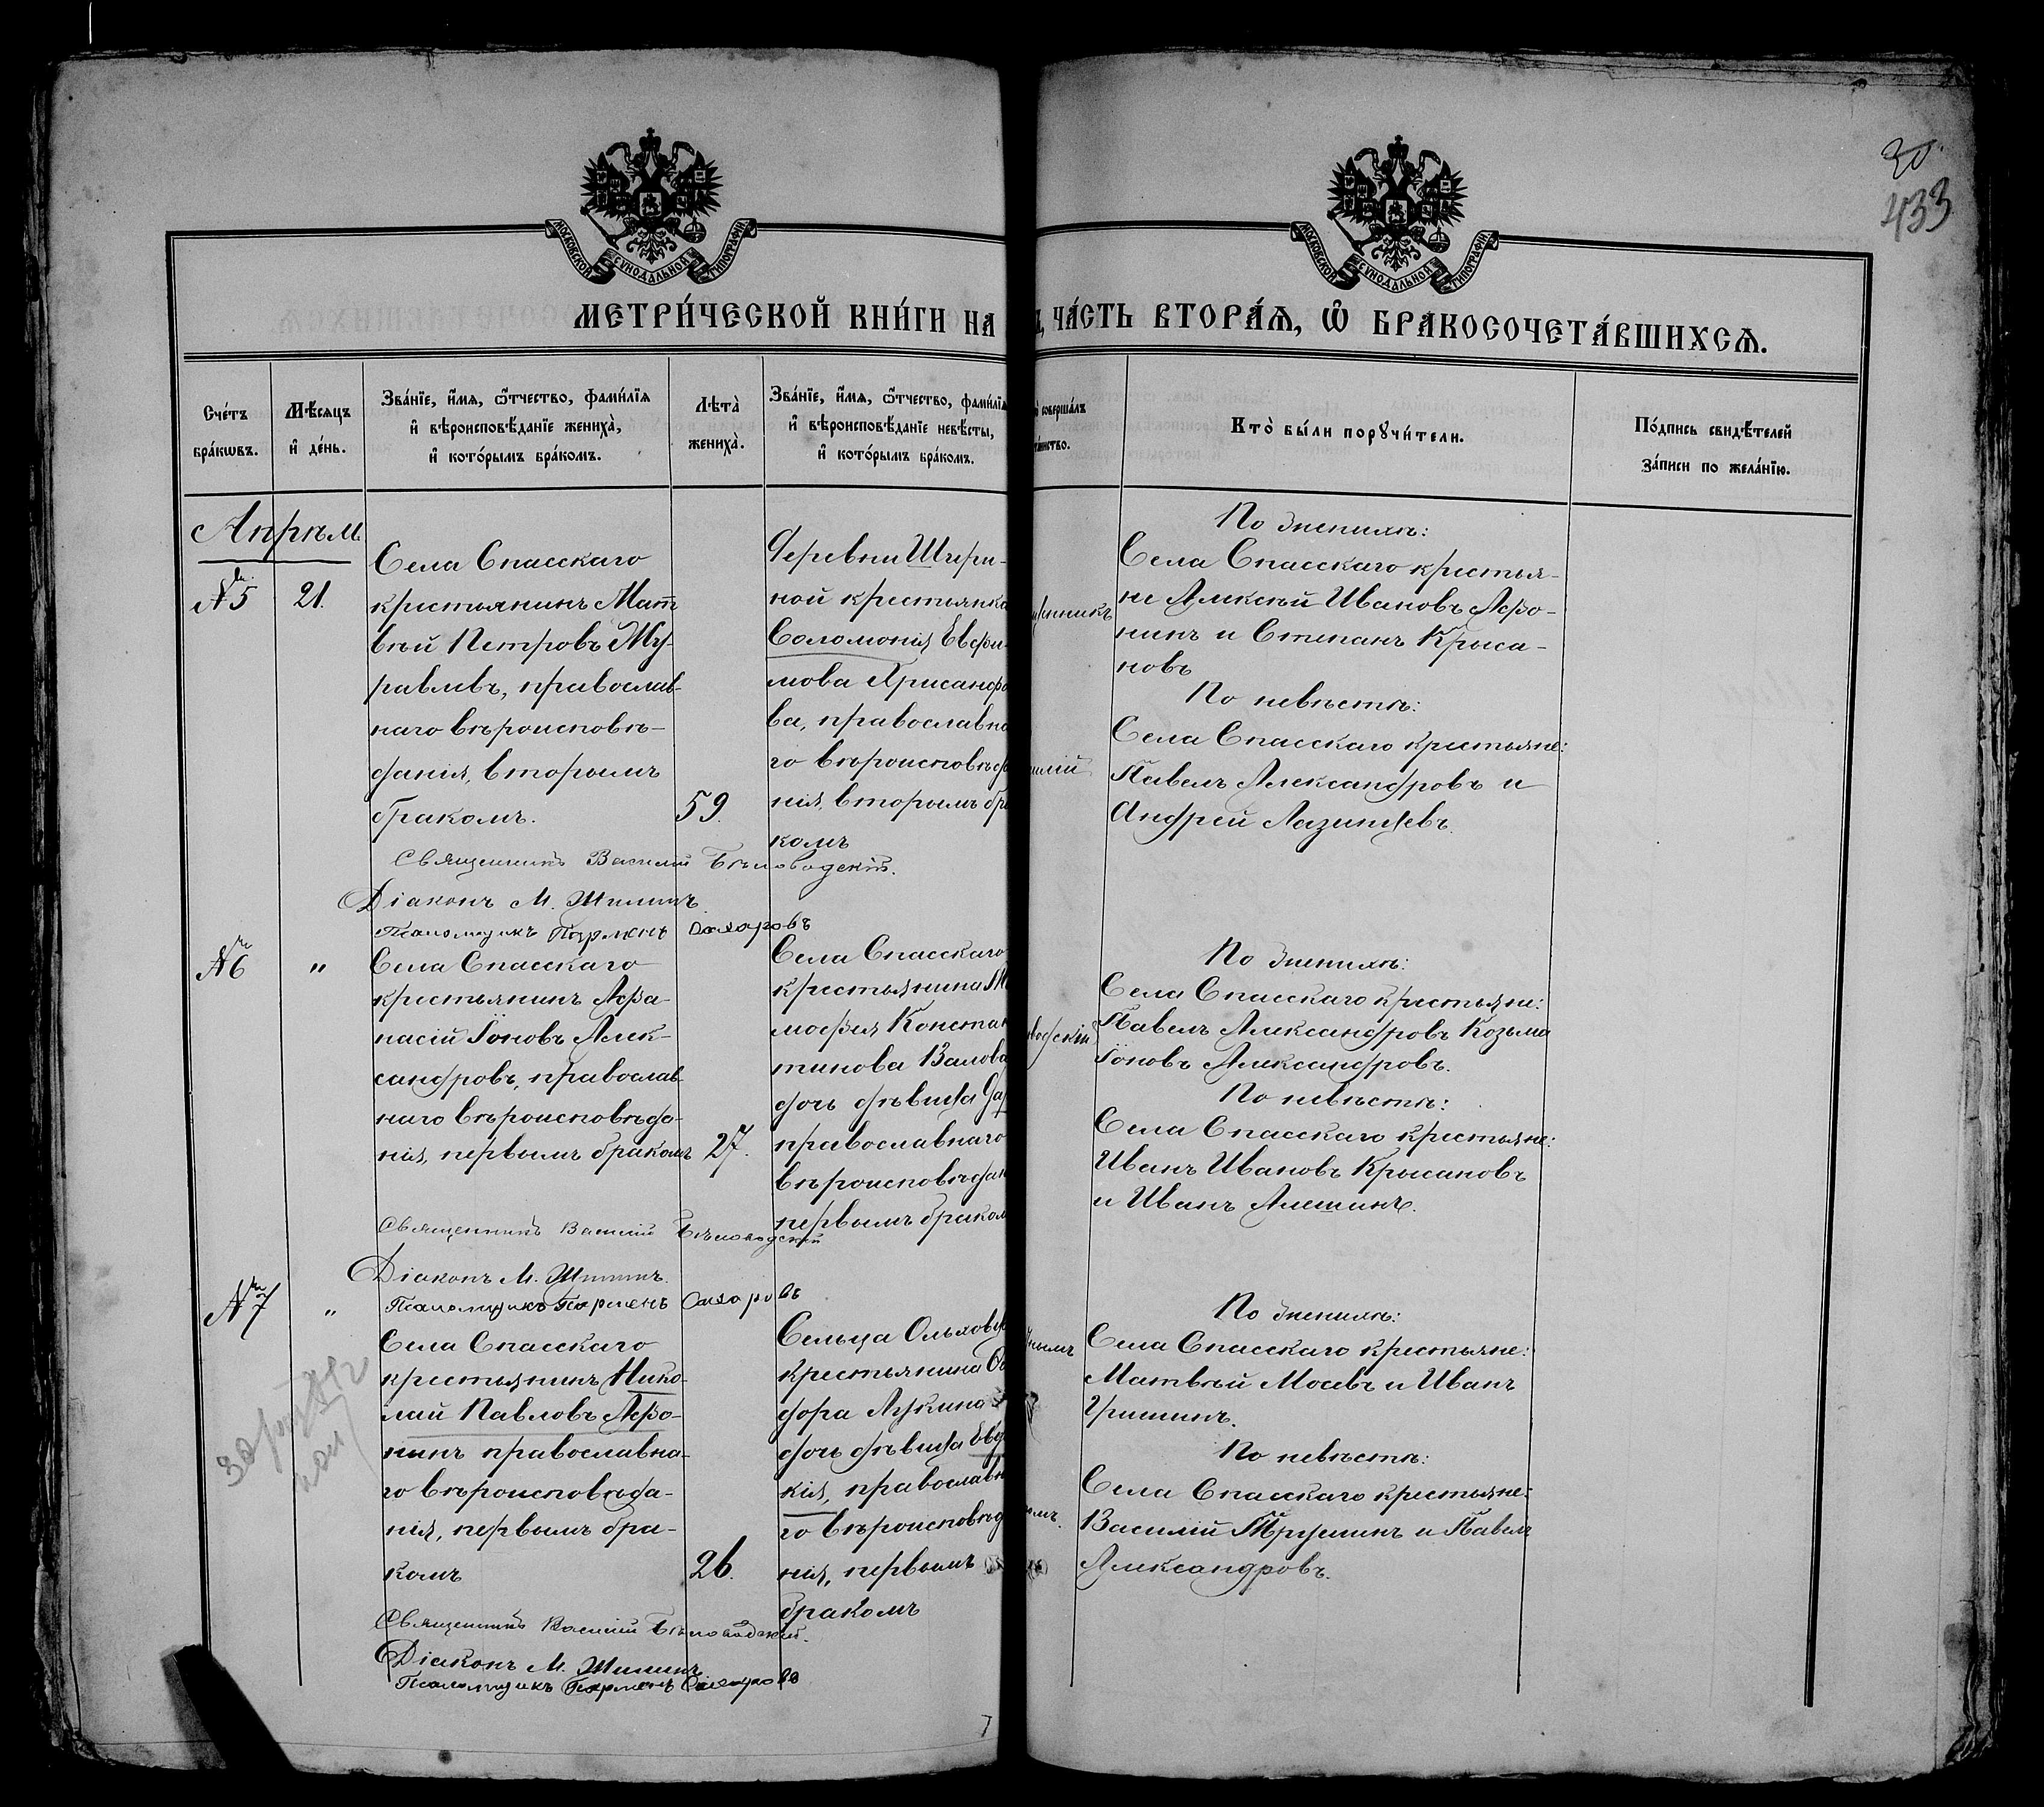 30.
433
МОСКОВСКОЙ СУНОДАЛЬНОЙ ТИПОГРАФІИ
МОСКОВСКОЙ СУНОДАЛЬНОЙ ТИПОГРАФІИ
МЕТРИ́ЧЕСКОЙ КНИ́ГИ НА
Ъ, ЧА́СТЬ ВТОРА́Ѧ, Ѽ БРАКОСОЧЕТА́ВШИХСѦ.
Сче́тъ
бра́кѡвъ.
Мѣ́сяцъ
и҆ де́нь.
Зва́нїе, и҆́мѧ, ѻ҆́тчество, фами́лїѧ
и҆ вѣроисповѣ́данїе жениха̀,
и҆ кото́рымъ бра́комъ.
Лѣта̀
жениха̀.
Зва́нїе, и҆́мѧ, ѻ҆́тчество, фами́лїѧ
и҆ вѣроисповѣ́данїе невѣ́сты,
и҆ кото́рымъ бра́комъ.
соверша́лъ
Кто̀ бы́ли порꙋчи́тели.
По́дпись свидѣ́телей
за́писи по жела́нїю.
Апрѣль
№ 5
21.
Села Спасскаго
крестьянинъ Мат
вѣй Петровъ Жу-
равлевъ, православ-
наго вѣроисповѣ-
данія, вторымъ
бракомъ.
59.
Деревни
ной крестьянка
Соломонія Евфи-
мова Хрисанфо
ва, православна
го вѣроисповѣда
нія, вторымъ бра
комъ
щенникъ
силій
По женихѣ:
Села Спасскаго крестья-
не Алексѣй Ивановъ Афо-
нинъ и Степанъ Крыса-
новъ
По невѣстѣ:
Села Спасскаго крестьяне:
Павелъ Александровъ и
Андрей
Священникъ Василій Бѣловодскій.
Діаконъ М. Шилинъ
Псаломщикъ Парменъ Сахаровъ
№ 6
"
Села Спасскаго
крестьянинъ Афа-
насій Іоновъ Алек-
сандровъ, православ-
наго вѣроисповѣда-
нія, первымъ бракомъ
27.
Села Спасскаго
крестьянина Ти
мофея Констан
тинова Валова
дочь дѣвица Да
православнаго
вѣроисповѣдан
первымъ браком
водскій
По женихѣ:
Села Спасскаго крестьяне:
Павелъ Александровъ Козьма
Іоновъ Александровъ.
По невѣстѣ:
Села Спасскаго крестьяне:
Иванъ Ивановъ Крысановъ
и Иванъ Алешинъ.
Священникъ Василій Бѣловодскій
Діаконъ М. Шилинъ.
Псаломщикъ Парменъ Сахаровъ
№ 7
"
Села Спасскаго
крестьянинъ Нико-
лай Павловъ Афо-
нинъ православна-
го вѣроисповѣда-
нія, первымъ бра-
комъ
26.
Сельца Ольховц
крестьянина Ѳе
дора Лукина
дочь дѣвица Евдо
кія, православн
го вѣроисповѣд
нія, первымъ
бракомъ
По женихѣ:
Села Спасскаго крестьяне:
Матвѣй Мосевъ и Иванъ
Гришинъ.
По невѣстѣ:
Села Спасскаго крестьяне:
Василій Трушинъ и Павелъ
Александровъ.
Священникъ Василій Бѣловодскій.
Діаконъ М. Шилинъ.
Псаломщикъ Парменъ Сахаровъ